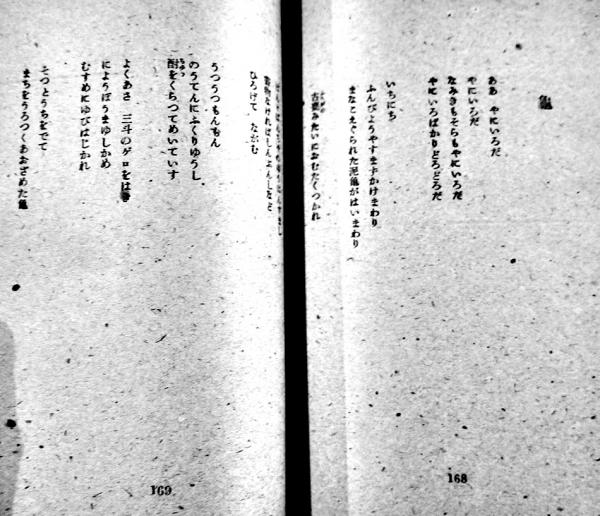 亀
ああ やにいろだ
やにいろだ
なみきもそらもやにいろだ
やにいろばかりどろどろだ
いちにち
ふんぴようやすまずかけまわり
まなこえぐられた泥亀がはいまわり
みたいにおむたくつかれ
168
ひろげて ながむ
うつうつもんもん
のうてんにふくりゆうし
酎をくらつてめいていす
よくあさ 三斗のゲロをは
にようぼうまゆしかめ
むすめにゆびはじかれ
そつとうちをでて
まちをうろつくあおざめた亀
169